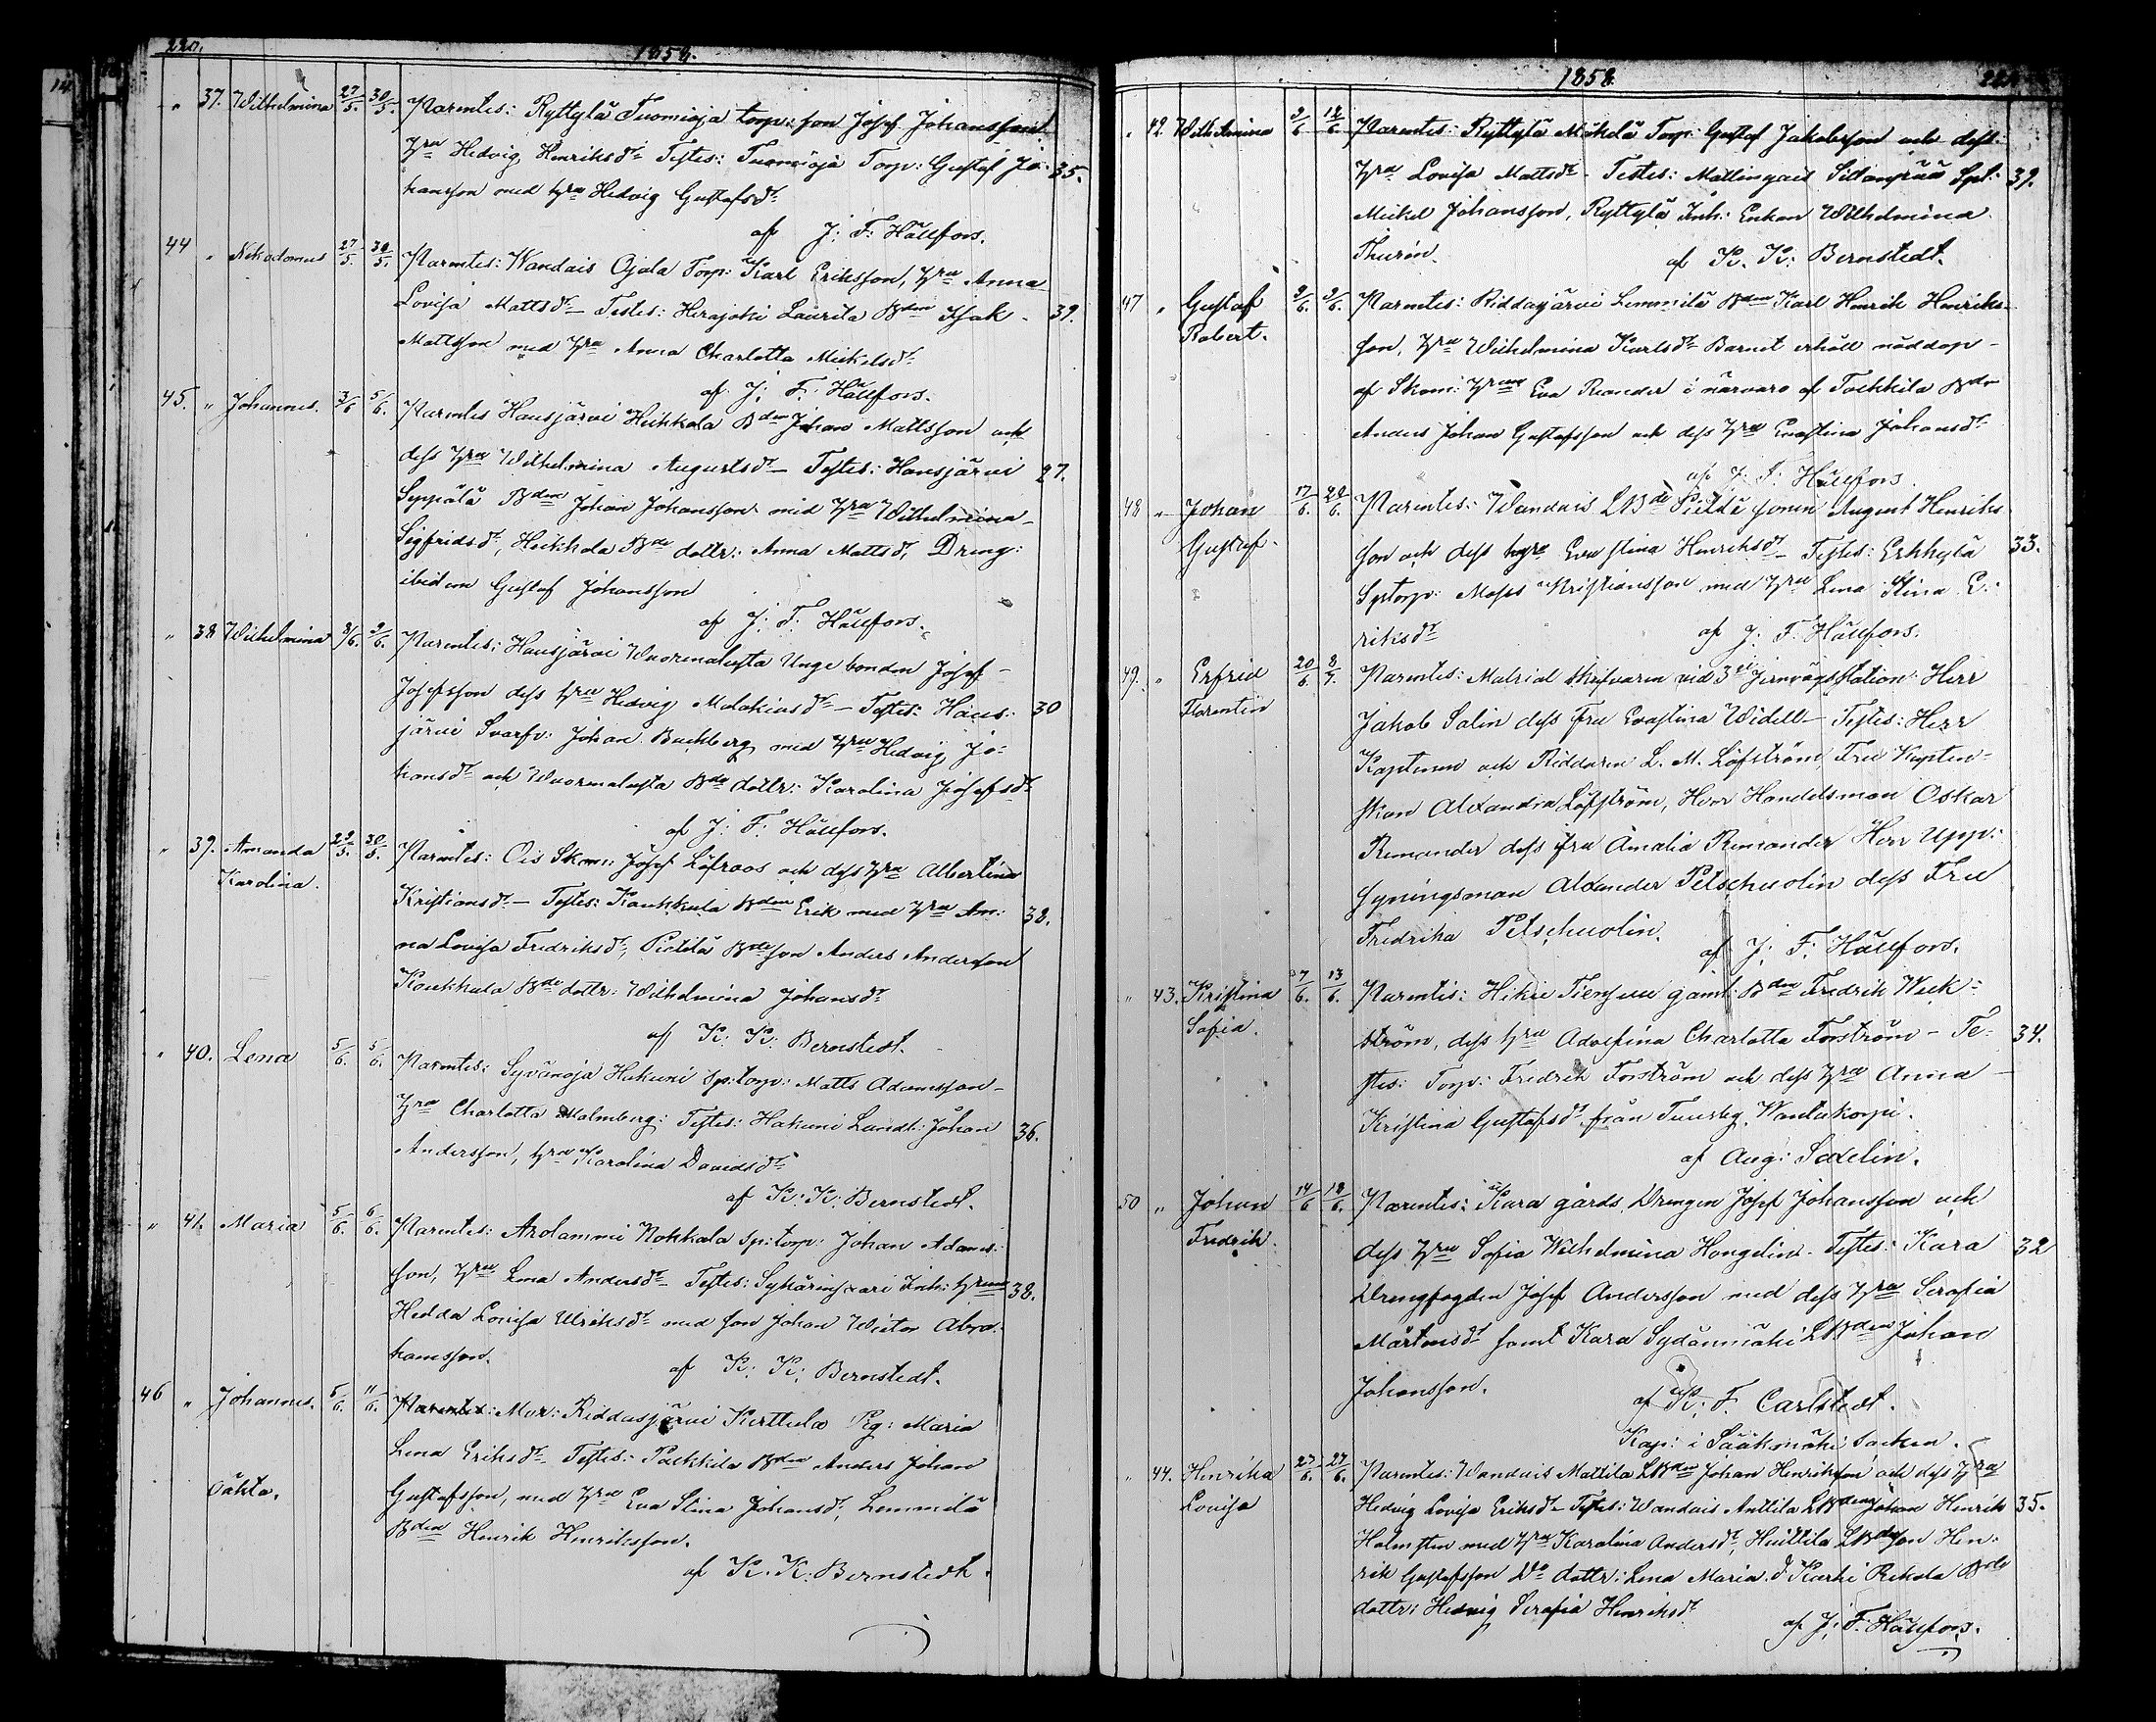 220.
1858.
" 37. Wilhelmina 27/5. 30/5. Parentes: Ryttylä Tuomioja torp: son Josef Johansson
Hru Hedvig Henriksdr Testes: Tuomioja Torp: Gustaf Jo- 35.
hansson med hru Hedvig Gustafsdr
af J: F: Hällfors.
44 " Nikodemus 27/5. 30/5. Parentes: Wandais Ojala Torp: Karl Eriksson, Hru Anna
Lovisa Mattsdr Testes: Herajoki Laurila Bden Isak 39.
Mattsson med Hru Anna Charlotta Mickelsdr
af J: F: Hällfors.
45. " Johannes. 3/6 5/6. Parentes Hausjärvi Heikkola Bden Johan Mattsson och
dess Hru Wilhelmina Augustsdr Testes: Hausjärvi 27.
Seppälä Bden Johan Johansson med Hru Wilhelmina
Sigfridsdr, Heikkola Bde dottr: Anna Mattsdr, Dreng:
ibidem Gustaf Johansson
af J: F: Hällfors.
" 38 Wilhelmina 3/6. 5/6. Parentes: Hausjärvi Wuorenalusta Unge bonden Josef
Josefsson dess hru Hedvig Malakiasdr Testes: Haus- 30
järvi Svarfv: Johan Buchberg med Hru Hedvig Jo-
hansdr och Wuorenalusta Bde dottr: Karolina Josefsdr
af J: F: Hällfors.
" 39. Amanda 29/5. 30/5. Parentes: Ois Skom: Josef Löfroos och dess Hru Albertina
Karolina. Kristiansdr Testes: Kaukkula Bden Erik med Hru An- 38.
na Lovisa Fredriksdr, Pietilä Bde son Anders Andersson
Koukkula Bde dottr: Wilhelmina Johansdr
af K: K: Bernstedt.
" 40. Lena 5/6. 5/6. Parentes: Syvänoja Hakuni sp: torp: Matts Adamsson
Hru Charlotta Malmberg: Testes: Hakuni Landb: Johan 36.
Andersson, hru Karolina Davidsdr
af K: K: Bernstedt.
" 41. Maria 5/6. 6/6. Parentes: Arolammi Nokkala sp: torp: Johan Adams-
son, Hru Lena Andersdr Testes: Sykärinsaari Inh: hrun 38.
Hedda Lovisa Ulriksdr med son Johan Wictor Abra-
hamsson.
af K: K: Bernstedt.
46 " Johannes. 5/6. 11/6. Parentes: Mor: Riddasjärvi Kerttula Pig: Maria
Lena Eriksdr Testes: Pachkila Bden Anders Johan
Oäkta. Gustafsson, med Hru Eva Stina Johansdr, Lemmilä
Bden Henrik Henriksson.
af K. K. Bernstedt.
1858.
" 42. Wilhelmina 9/6 12/6 Parentes: Ryttylä Mikilä Torp: Gustaf Jakobsson och dess
Hru Lovisa Mattsdr Testes: Mattingais Sillanpää Spl: 39.
Mickel Johansson, Ryttylä Inh: Enkan Wilhelmina
Thurén. af K. K: Bernstedt.
47 " Gustaf 9/6. 9/6. Parentes: Riddasjärvi Lemmilä Bden Karl Henrik Henriks-
Robert. son, Hru Wilhelmina Karlsdr Barnet erhöll nöddop
af Skom: Hrun Eva Reander i närvaro af Pachkila Bde
Anders Johan Gustafsson och dess Hru Evastina Johansdr
af J: F: Hällfors.
48 " Johan 17/6. 20/6. Parentes: Wandais LBde Pietilä sonen August Henriks-
Gustaf. son och dess hru Eva stina Henriksdr Testes: Erkkylä 33.
Sptorp: Moses Kristiansson med Hru Lena Stina E-
riksdr af J: F: Hällfors.
49. " Erfrid 20/6 8/7. Parentes: Matrial skrifvaren vid 3dje Jernvägsstation: Herr
Florentin Jakob Salin dess Fru Evastina Widell Testes: Herr
Kaptenen och Riddaren L. M. Löfström, Fru Kapten-
skan Alexandra Löfström, Herr Handelsman Oskar
Remander dess fru Amalia Remander Herr Upp-
syningsman Alexander Petschuolin dess Fru
Fredrika Petschuolin.
af J: F: Hällfors.
" 43. Kristina 7/6. 13/6. Parentes: Hikie Tiensuu gamb: Bden Fredrik Weck-
Sofia. ström, dess hru Adolfina Charlotta Forström Te- 34.
stes: Torp: Fredrik Forström och dess Hru Anna
Kristina Gustafsdr från Tuusby Wantakorpi.
af Aug: Sadelin.
50 " Johan 14/6 18/6. Parentes: Kara gårds Drengen Josef Johansson och
Fredrik. dess Hru Sofia Wilhelmina Hongelin Testes: Kara 32
Drengfogden Josef Andersson med dess Hru Serafia
Mårtensdr samt Kara Sydänmäki LBden Johan
Johansson.
af K: F. Carlstedt.
Kap: i Sääksmäki socken.
" 44. Henrika 27/6. 27/6. Parentes: Wandais Mattila LBden Johan Henriksson och dess Hru
Lovisa Hedvig Lovisa Eriksdr Testes: Wandais Anttila LBden Johan Henrik 35.
Holmsten med Hru Karolina Andersdr, Heittila LBdeson Hen-
rik Gustafsson Do dottr: Lena Maria d: Karhi Rekola Bde
dottr: Hedvig Serafia Henriksdr
af J: F: Hällfors.